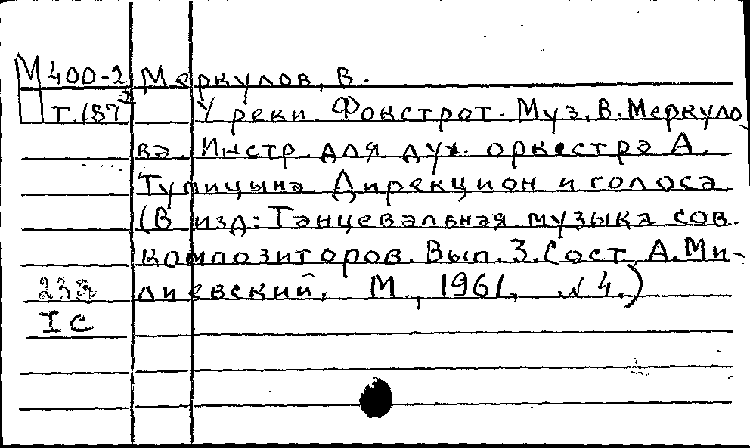 М 400-2 Меркулов, В.
Т.187² У реки. Фокстрот. Муз. В. Меркуло
ва. Инстр. для дух. оркестра А.
Тупицына. Дирекцион и голоса
(В изд: Танцевальная музыка сов.
композиторов. Вып. 3. Сост. А. Ми-
233 лиевский. М., 1961. №4.)
IC